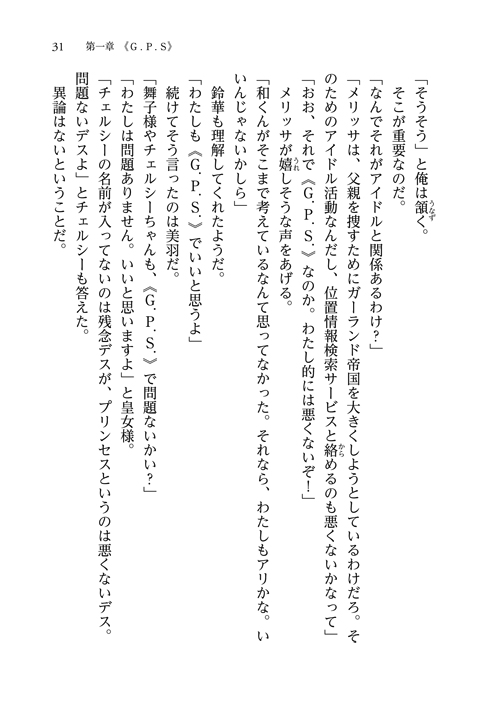 31　第一章　《G.P.S》
「そうそう」と俺は頷く。
うなず
そこが重要なのだ。
「なんでそれがアイドルと関係あるわけ？」
「メリッサは、父親を捜すためにガーランド帝国を大きくしようとしているわけだろ。そ
のためのアイドル活動なんだし、位置情報検索サービスと絡めるのも悪くないかなって」
から
「おお、それで《G.P.S.》なのか。わたし的には悪くないぞ！」
メリッサが嬉しそうな声をあげる。
うれ
「和くんがそこまで考えているなんて思ってなかった。それなら、わたしもアリかな。い
いんじゃないかしら」
鈴華も理解してくれたようだ。
「わたしも《G.P.S.》でいいと思うよ」
続けてそう言ったのは美羽だ。
「舞子様やチェルシーちゃんも、《G.P.S.》で問題ないかい？」
「わたしは問題ありません。いいと思いますよ」と皇女様。
「チェルシーの名前が入ってないのは残念デスが、プリンセスというのは悪くないデス。
問題ないデスよ」とチェルシーも答えた。
異論はないということだ。